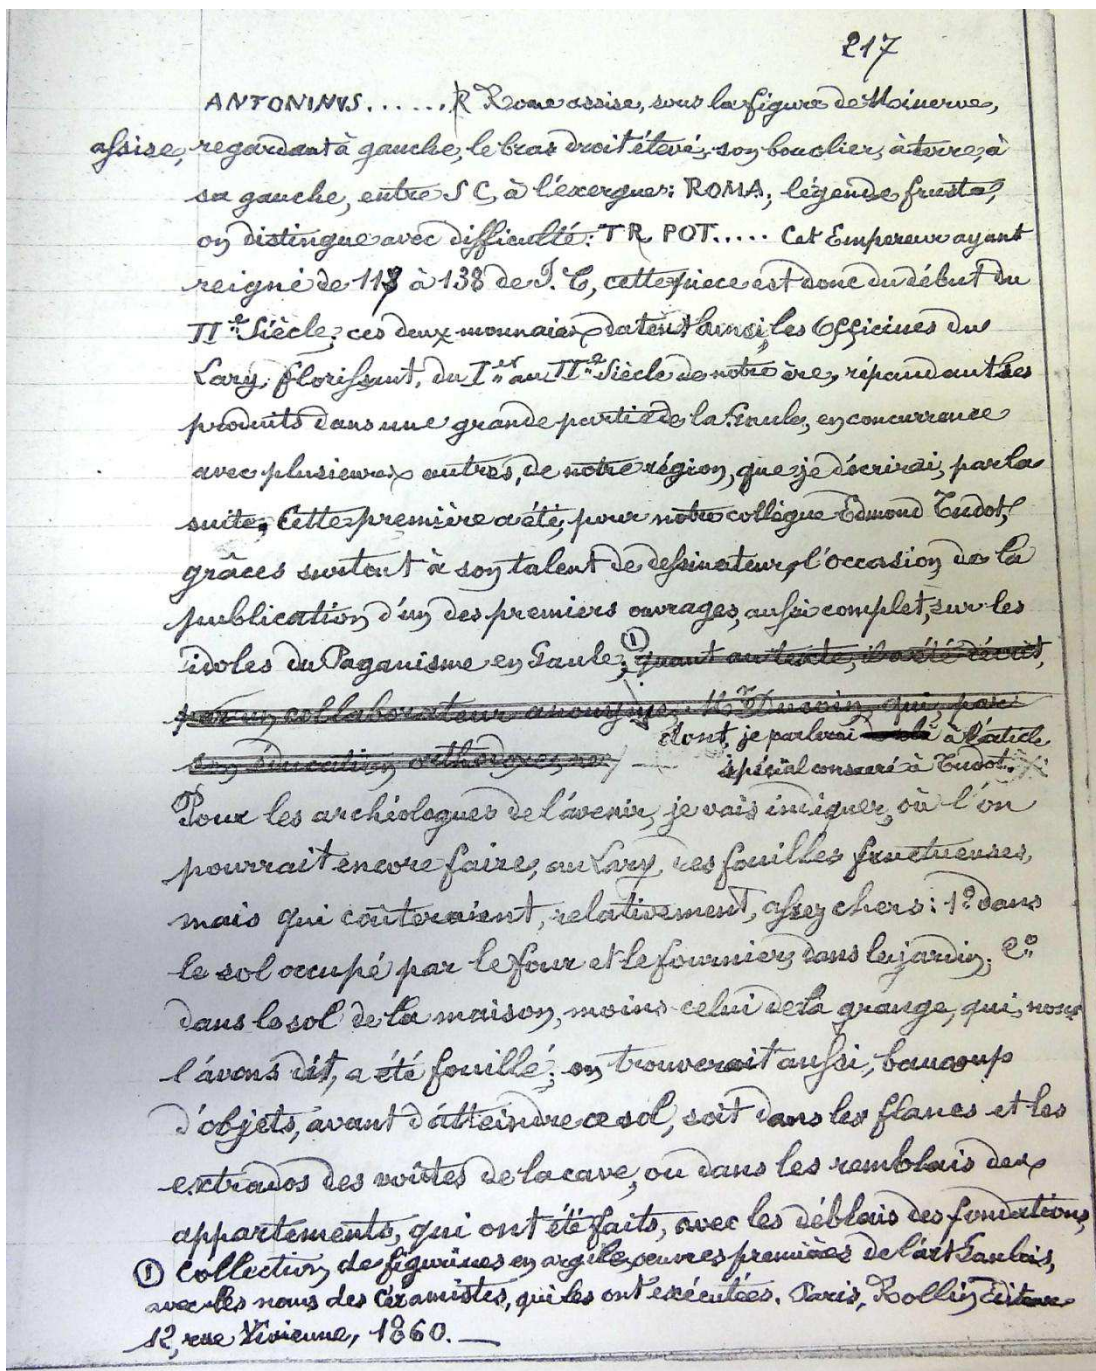 217
ANTONINVS...... R Rome assise, sous la figure de Minerve,
assise, regardant à gauche, le bras droit élevé, son bouclier, à terre, à
sa gauche, entre S C, à l'exergue: ROMA, légende fruste,
on distingue avec difficulté: TR POT..... Cet Empereur ayant
reigné de 117 à 138 de J. C, cette piece est donc du début du
IIe Siècle; ces deux monnaies datent ainsi, les Officines du
Lary, florissant, du Ier au IIe Siècle de notre ère, répandant les
produits dans une grande partie de la Gaule, en concurrence
avec plusieurs autres, de notre région, que je décrirai, par la
suite, Cette première a été, pour notre collègue Edmond Tudot,
grâces surtout à son talent de dessinateur, l'occasion de la
publication d'un des premiers ouvrages, aussi complet, sur les
idoles du Paganisme en Gaule; (1) quant au texte, il a été écrit,
par un collaborateur anonyme, Mr qui, par
dont, je parlerai à l'article
son éducation orthodoxe,
spécial consacré à Tudot.
Pour les archéologues de l'avenir, je vais indiquer, où l'on
pourrait encore faire, au Lary, des fouilles fructueuses,
mais qui coûteraient, relativement, assez chers: 1º dans
le sol occupé par le four et le fournier, dans le jardin; 2º
dans le sol de la maison, moins celui de la grange, qui, nous
l'avons dit, a été fouillé; on trouverait aussi, baucoup
d'objets, avant d'atteindre ce sol, soit dans les flancs et les
extrados des voûtes de la cave, ou dans les remblais des
appartements, qui ont été faits, avec les déblais des fondations,
(1) Collection de figurines en argile, œuvres premières de l'art Gaulois,
avec les noms des Céramistes, qui les ont exécutées. Paris, Rollin éditeur
12, rue Vivienne, 1860. —